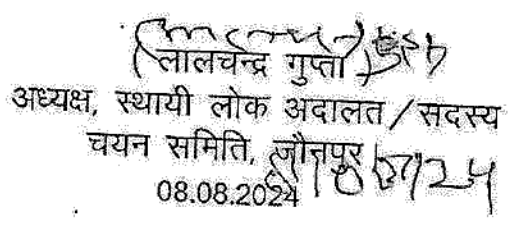 (लालचन्द्र गुप्ता)
अध्यक्ष, स्थायी लोक अदालत/सदस्य
चयन समिति, जौनपुर
08.08.2024